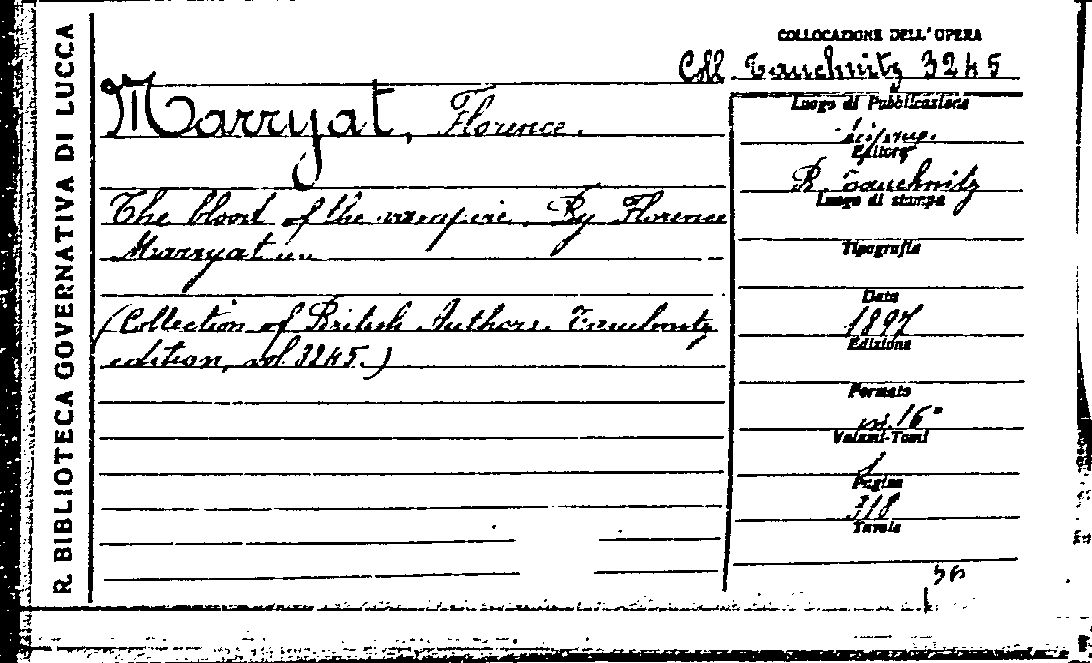 R. BIBLIOTECA GOVERNATIVA DI LUCCA
COLLOCAZIONE DELL'OPERA
Coll. Tauchnitz 3245
Marryat, Florence.
The blood of the vampire. By Florence
Marryat ...
(Collection of British Authors. Tauchnitz
edition, vol. 3245.)
Luogo di Pubblicazione
Leipzig.
Editore
B. Tauchnitz
Luogo di stampa
Tipografia
Data
1897
Edizione
Formato
in 16°
Volumi-Tomi
1
Pagine
318
Tavole